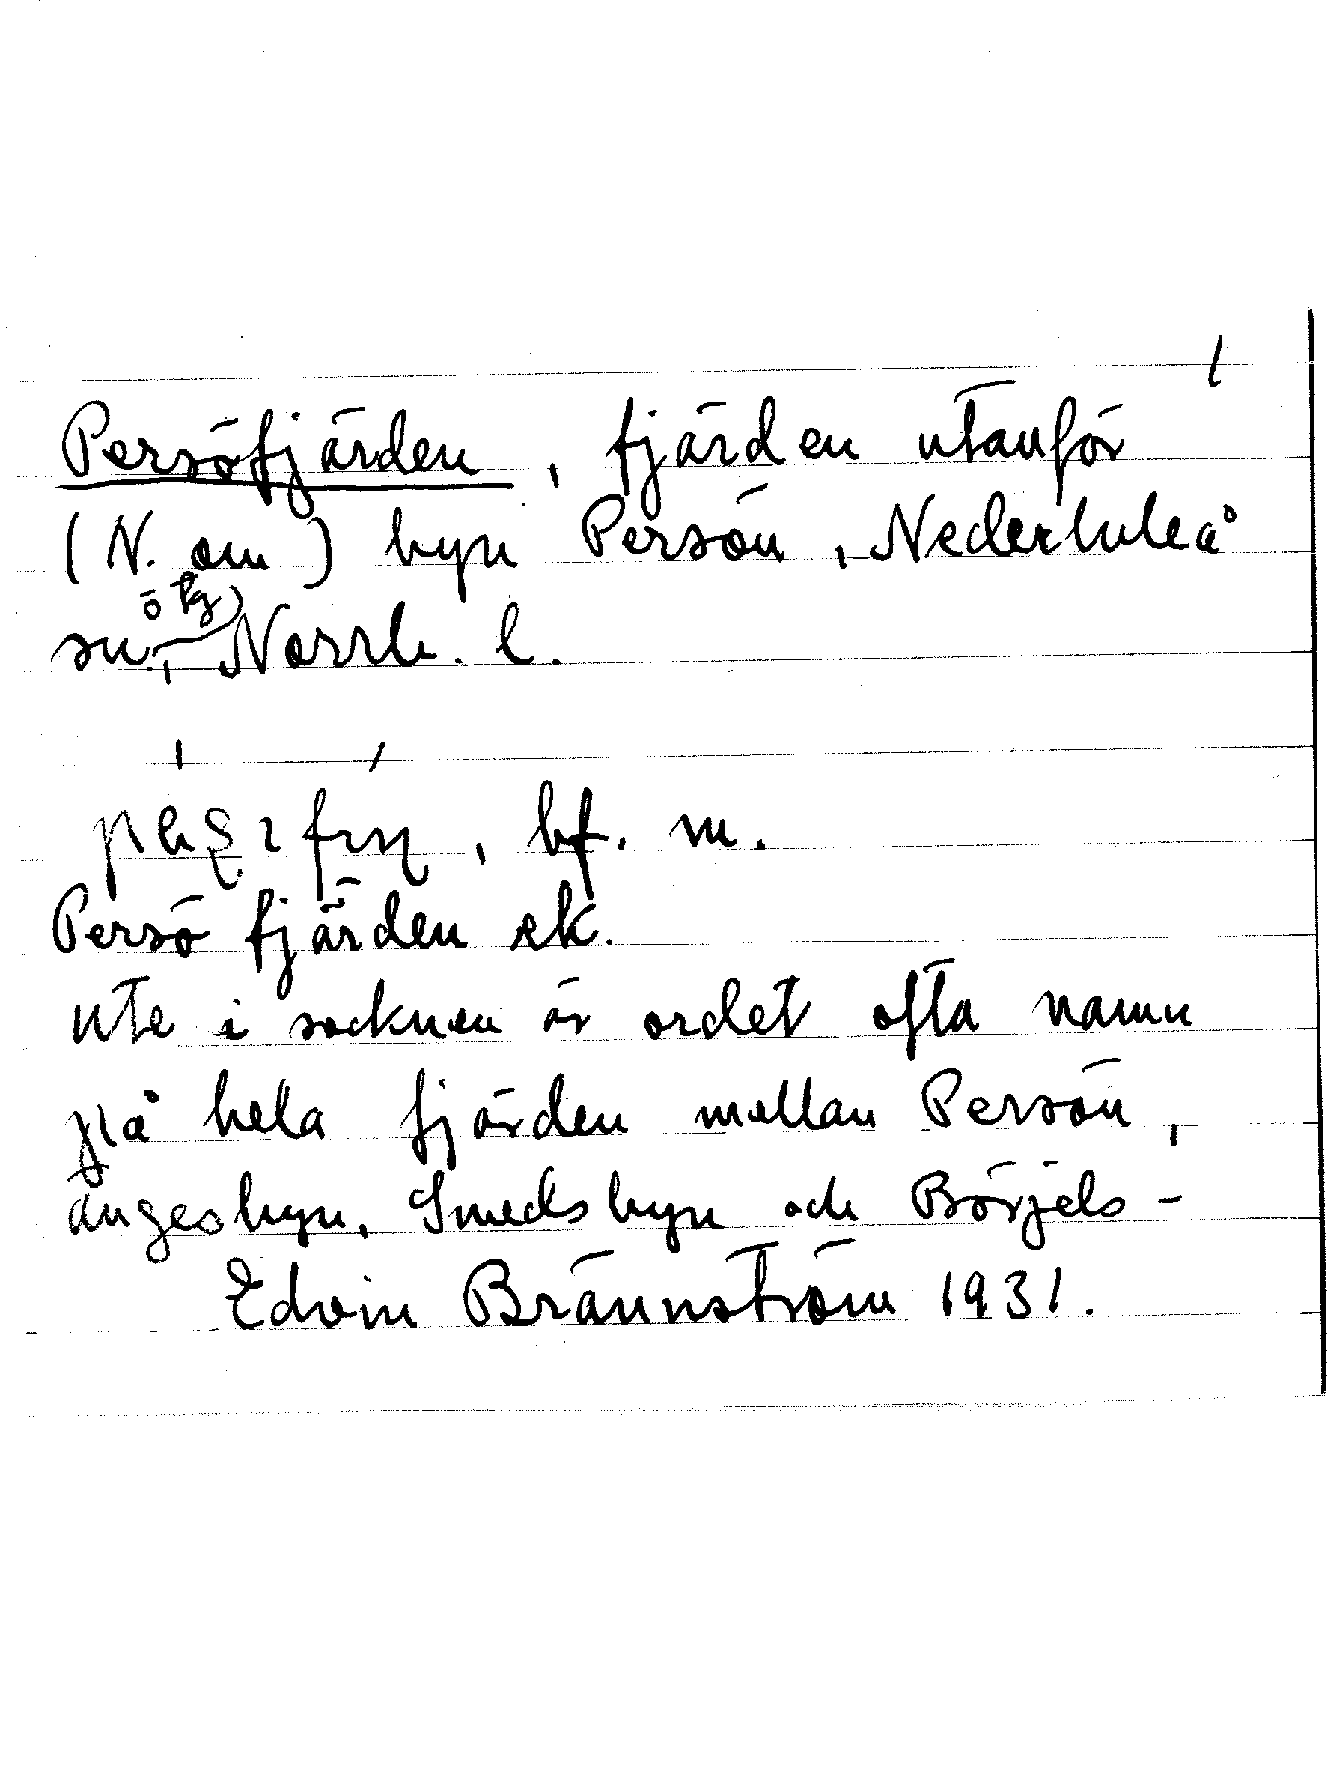 Persöfjärden, fjärden utanför
(N. om) byn Persön, Nederluleå
sn, Norrb. l.
bf. m.
Persö fjärden ek.
ute i socknen är ordet ofta namn
på hela fjärden mellan Persön,
ängesbyn, Smedsbyn och Börjels-
Edvin Brännström 1931.